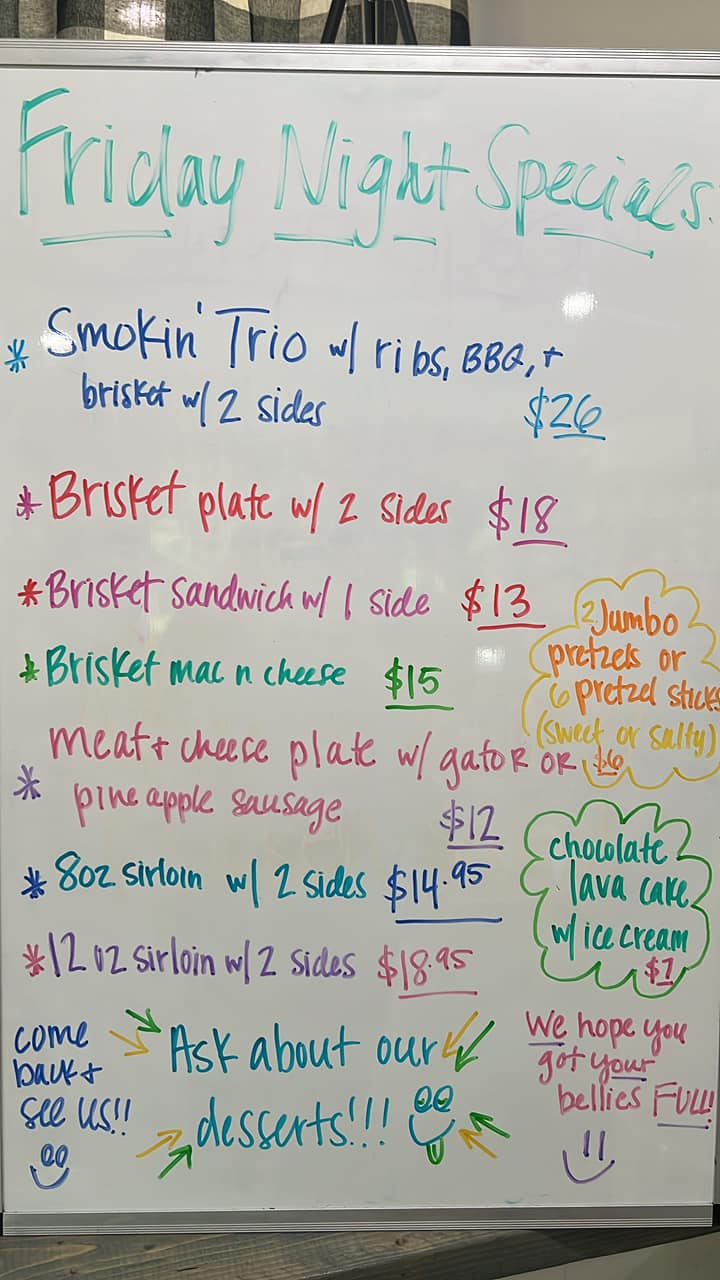 Friday Night Specials
* Smokin' Trio w/ ribs, BBQ, +
brisket w/ 2 sides $26
* Brisket plate w/ 2 sides $18
* Brisket sandwich w/ 1 side $13
* Brisket mac n cheese $15
* meat + cheese plate w/ gator OR
pineapple sausage $12
* 8oz sirloin w/ 2 sides $14.95
* 12 oz sirloin w/ 2 sides $18.95
2 Jumbo
pretzels or
6 pretzel sticks
(sweet or salty)
$6
chocolate
lava cake
w/ ice cream
$7
come
back +
see us!!
Ask about our
desserts!!!
We hope you
got your
bellies FULL!